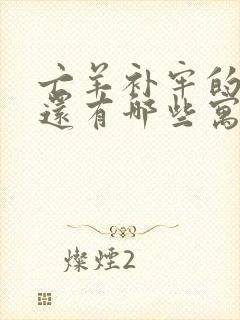 亡羊补牢的
还有哪些寓
燦煙2